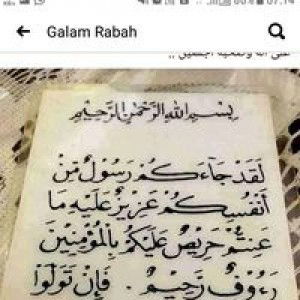 Galam Rabah
بِسْمِ اللهِ الرَّحْمٰنِ الرَّحِيْمِ
لَقَدْ جَاءَكُمْ رَسُولٌ مِّنْ
أَنْفُسِكُمْ عَزِيزٌ عَلَيْهِ مَا
عَنِتُّمْ حَرِيصٌ عَلَيْكُمْ بِالْمُؤْمِنِينَ
رَءُوفٌ رَّحِيمٌ . فَإِنْ تَوَلَّوْا